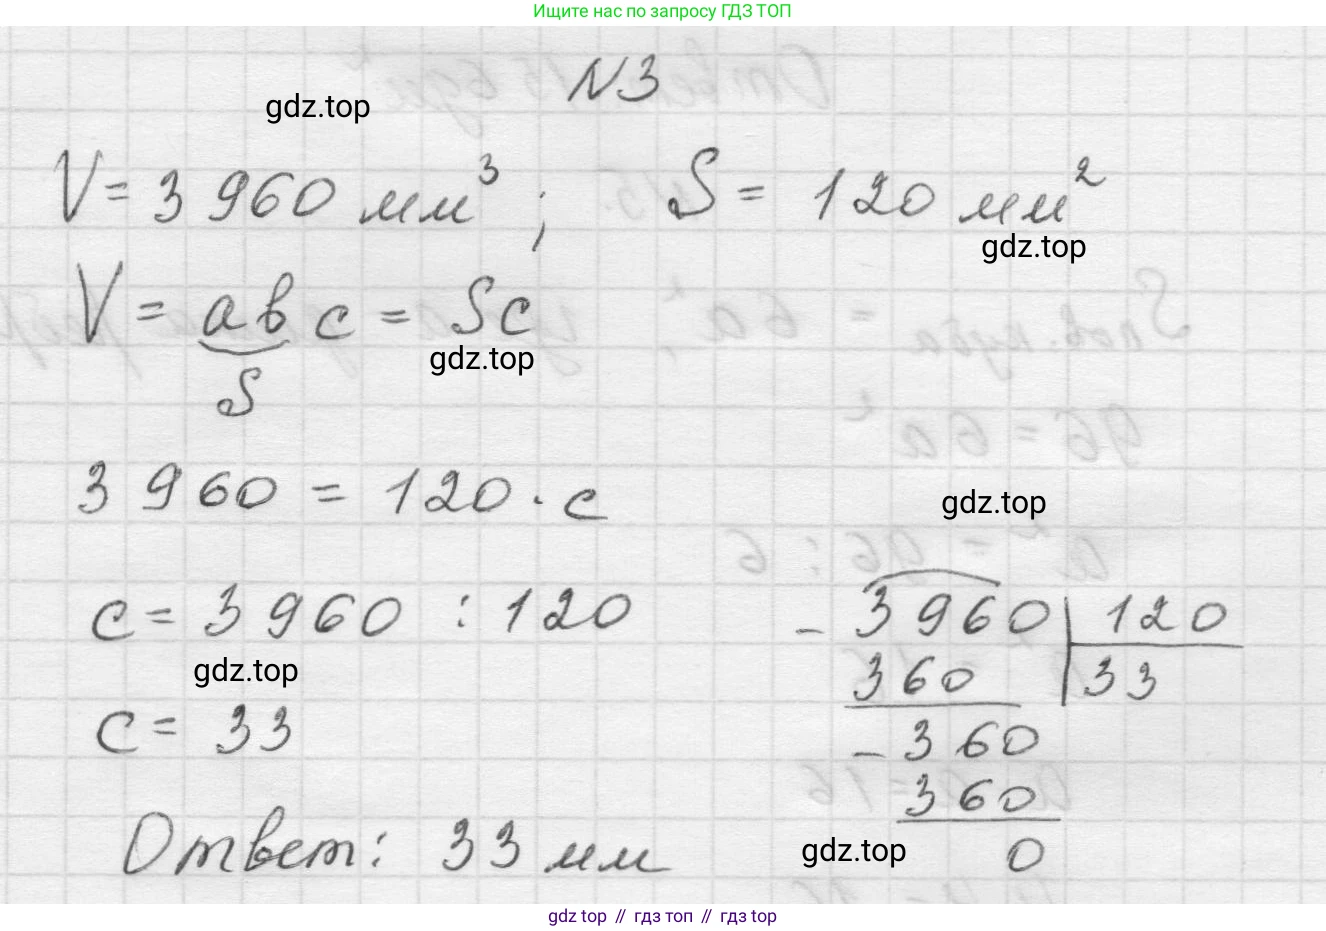 Ищите нас по запросу ГДЗ ТОП
N3
gdz.top
V = 3 960 мм³ ; S = 120 мм²
gdz.top
V = abc = Sc
gdz.top
S
3 960 = 120 · c
gdz.top
c = 3 960 : 120
gdz.top
c = 33
- 3960 | 120
360 33
- 360
360
0
gdz.top
Ответ: 33 мм
gdz.top // гдз топ // гдз top